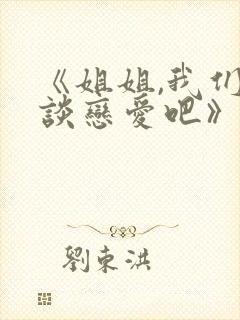 《姐姐,我们
談戀愛吧》
劉東洪